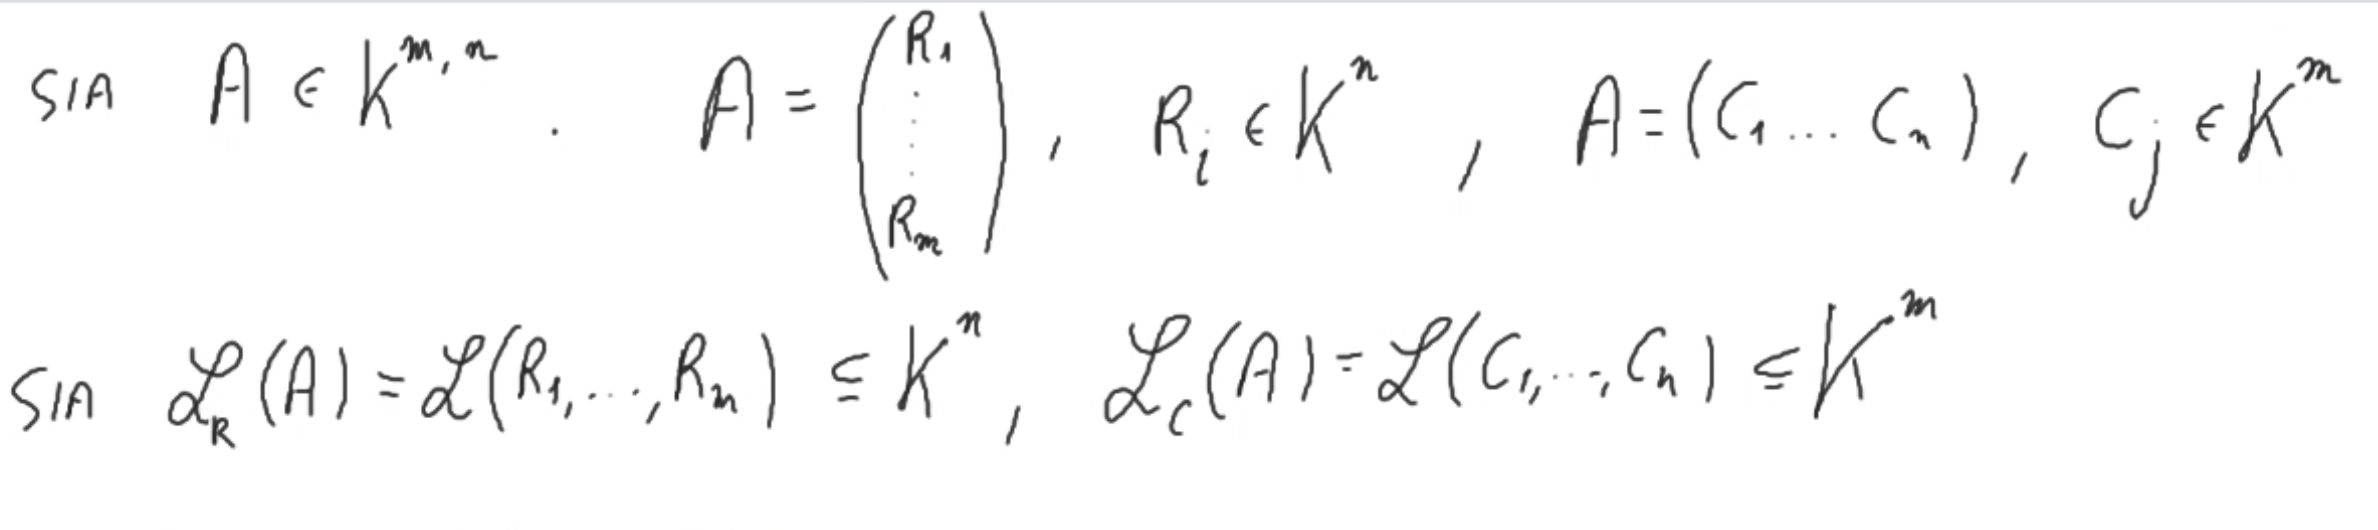 SIA A ∈ K^{m,n} . A = \begin{pmatrix} R_1 \\ \vdots \\ R_m \end{pmatrix} , R_i ∈ K^n , A = (C_1 ... C_n) , C_j ∈ K^m
SIA ℒ_R(A) = ℒ(R_1, ..., R_m) ⊆ K^n , ℒ_C(A) = ℒ(C_1, ..., C_n) ⊆ K^m